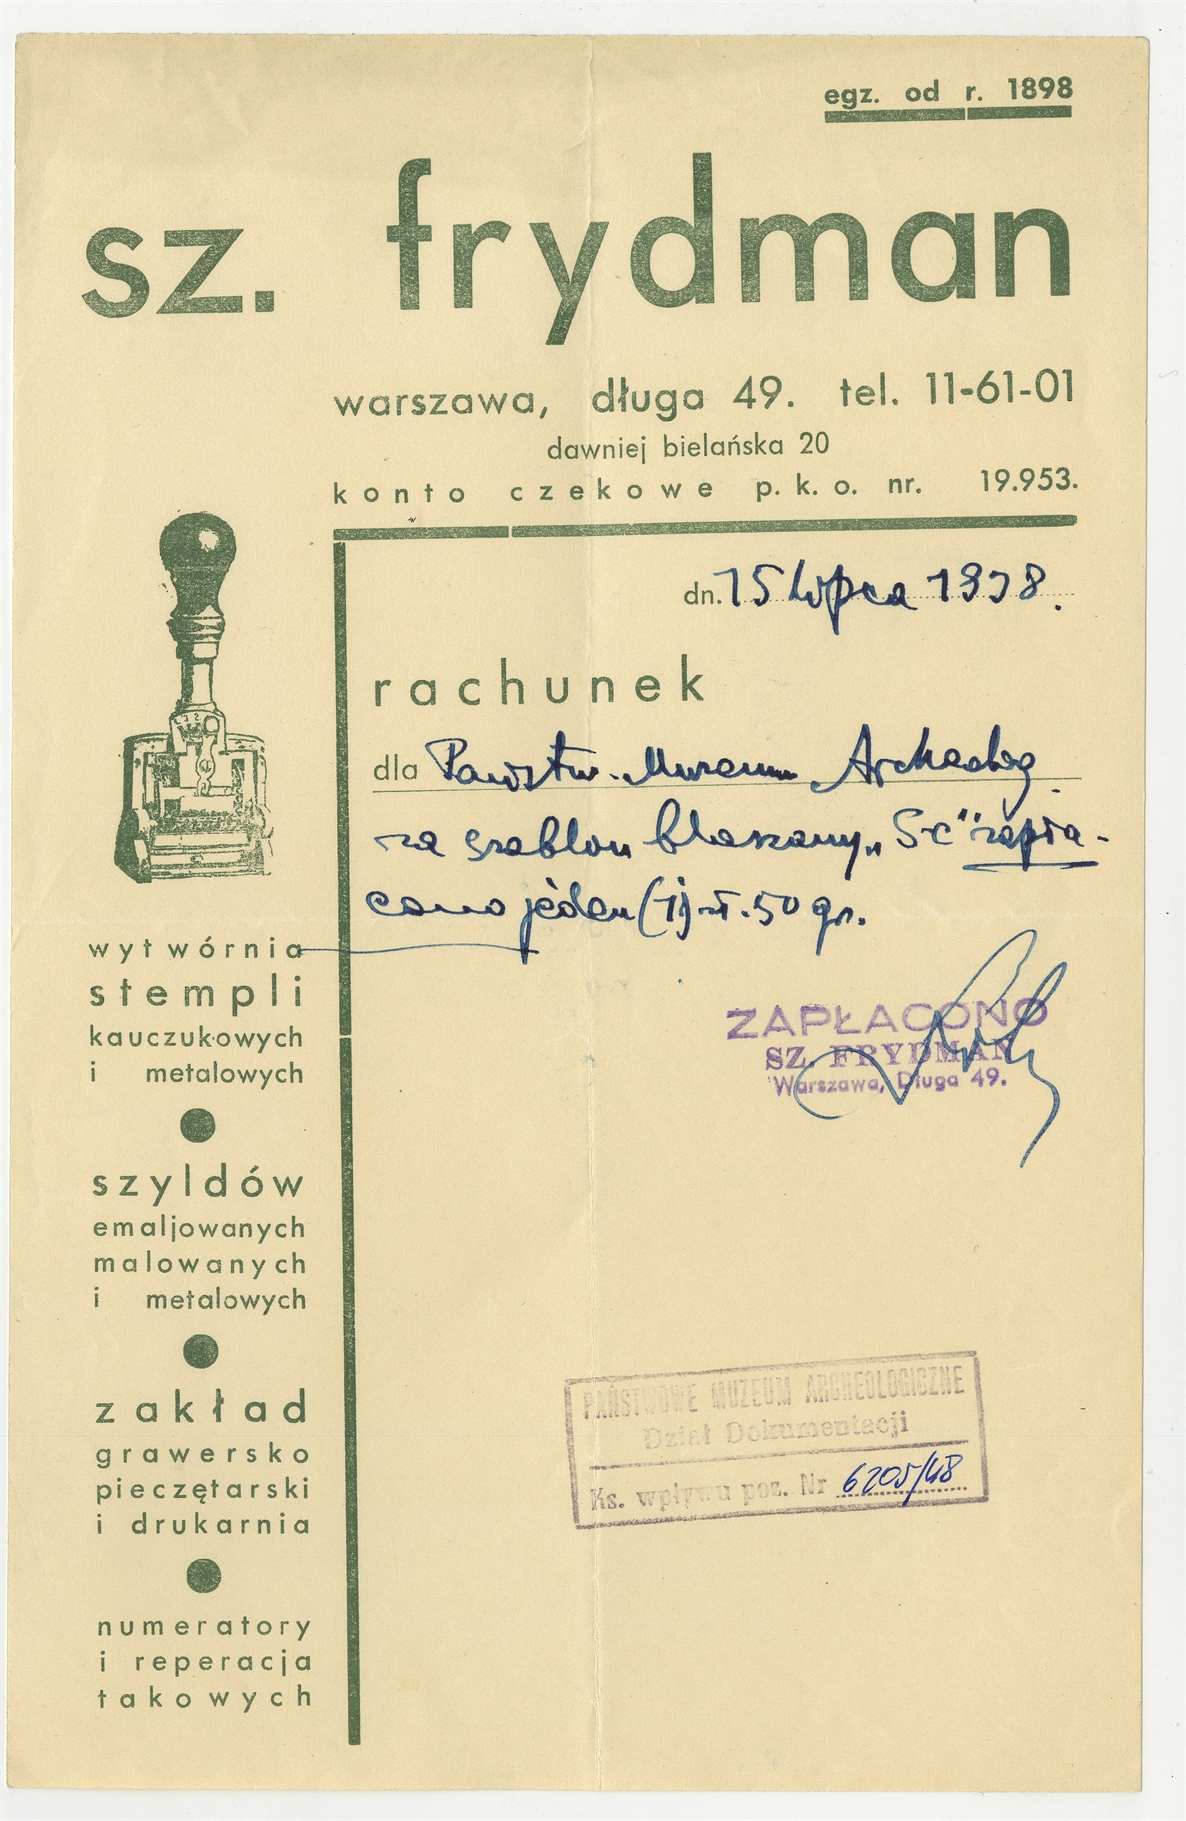 egz. od r. 1898
sz. frydman
warszawa, długa 49. tel. 11-61-01
dawniej bielańska 20
konto czekowe p. k. o. nr. 19.953.
dn. 15 Lipca 1938.
rachunek
dla Państw. Muzeum Archeolog.
za szablon blaszany „Sc” zapła-
cono jeden (1) zł. 50 gr.
wytwórnia
stempli
kauczukowych
i metalowych
szyldów
emaljowanych
malowanych
i metalowych
zakład
grawersko
pieczętarski
i drukarnia
numeratory
i reperacja
takowych
ZAPŁACONO
SZ. FRYDMAN
Warszawa, Długa 49.
PAŃSTWOWE MUZEUM ARCHEOLOGICZNE
Dział Dokumentacji
Ks. wpływu poz. Nr 6205/48